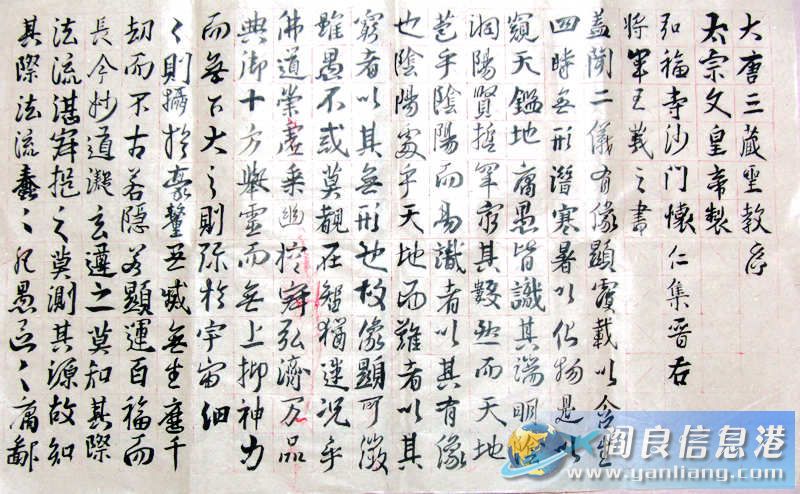 大唐三藏聖教序
太宗文皇帝製
弘福寺沙门懷仁集晋右
将軍王羲之書
蓋闻二儀有像顯覆載以含生
四時無形潛寒暑以化物是以
窺天鑑地庸愚皆識其端明陰
洞陽賢哲罕窮其數然而天地
苞乎陰陽而易識者以其有像
也陰陽處乎天地而難者以其
窮者以其無形也故像顯可徵
雖愚不或莫覩在智猶迷况乎
佛道崇虛乗幽控寂弘濟万品
典御十方舉靈而無上抑神力
而無下大之則弥於宇宙細
之則攝於豪釐無滅無生歷千
劫而不古若隱若顯運百福而
長今妙道凝玄遵之莫知其際
法流湛寂挹之莫測其源故知
其際法流蠢々凡愚區々庸鄙
阎良信息港
www.yanliang.com